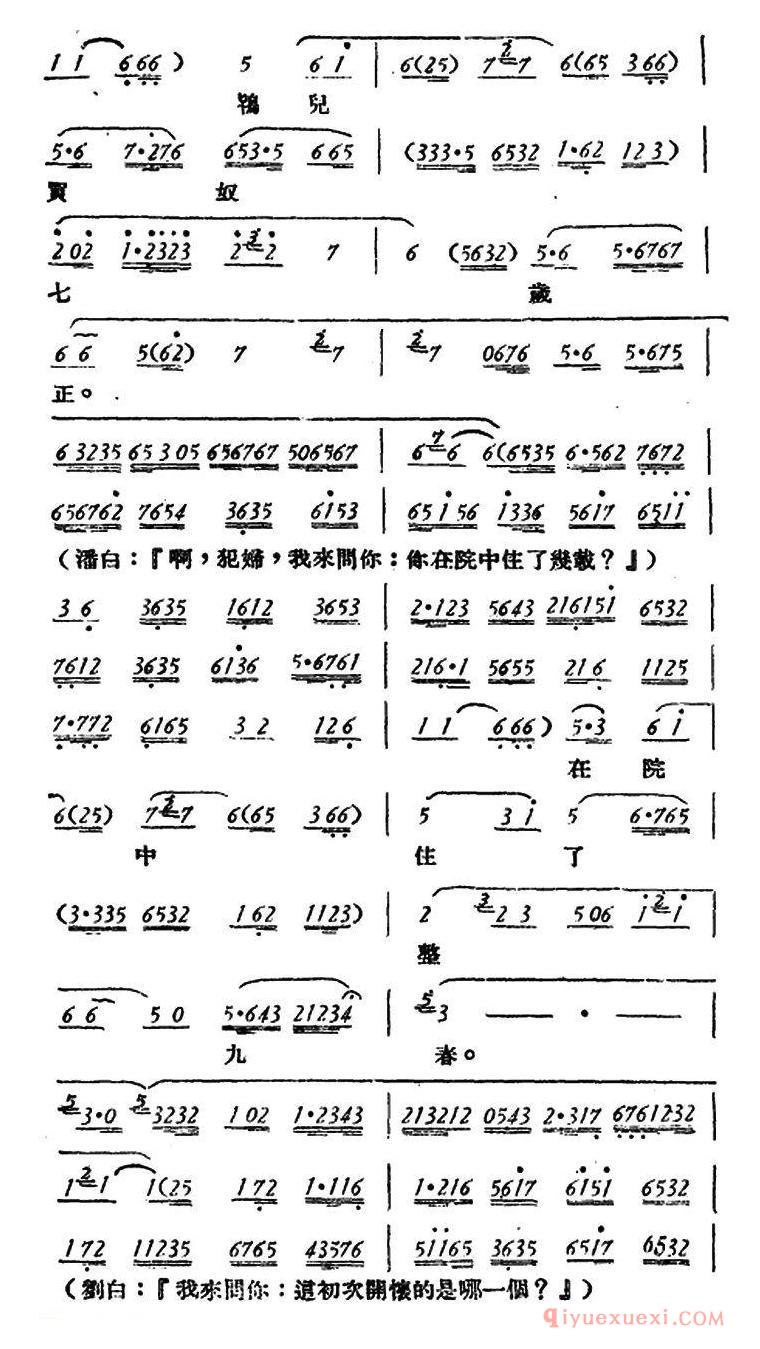 1 1 6 6 6 ) 5 6 1 | 6(25) 7 2 7 6(65 366) |
鴇 兒
5·6 7·276 653·5 665 | (333·5 6532 1·62 123) |
買 奴
202 1·2323 2 3 2 7 | 6 (5632) 5·6 5·6767 |
七 歲
6 6 5(62) 7 2 7 | 2 7 0676 5·6 5·675 |
正。
63235 65305 656767 506567 | 6 7 6 6(6535 6·562 7672 |
656762 7654 3635 6153 | 65156 1336 5617 6511 |
(潘白:『啊,犯婦,我來問你:你在院中住了幾載?』)
3 6 3635 1612 3653 | 2·123 5643 216151 6532 |
7612 3635 6136 5·6761 | 216·1 5655 216 1125 |
7·772 6165 3 2 126 | 1 1 666) 5·3 6 1 |
在 院
6(25) 7 2 7 6(65 366) | 5 3 1 5 6·765 |
中 住 了
(3·335 6532 162 1123) | 2 3 2 3 506 1 2 1 |
整
6 6 5 0 5·643 21234 | 5 3 — · — |
九 春。
5 3·0 5 3232 102 1·2343 | 213212 0543 2·317 6761232 |
1 2 1 1(25 172 1·116 | 1·216 5617 6151 6532 |
172 11235 6765 43576 | 51165 3635 6517 6532 |
(劉白:『我來問你:這初次開懷的是哪一個?』)
qiyuexuexi.COM